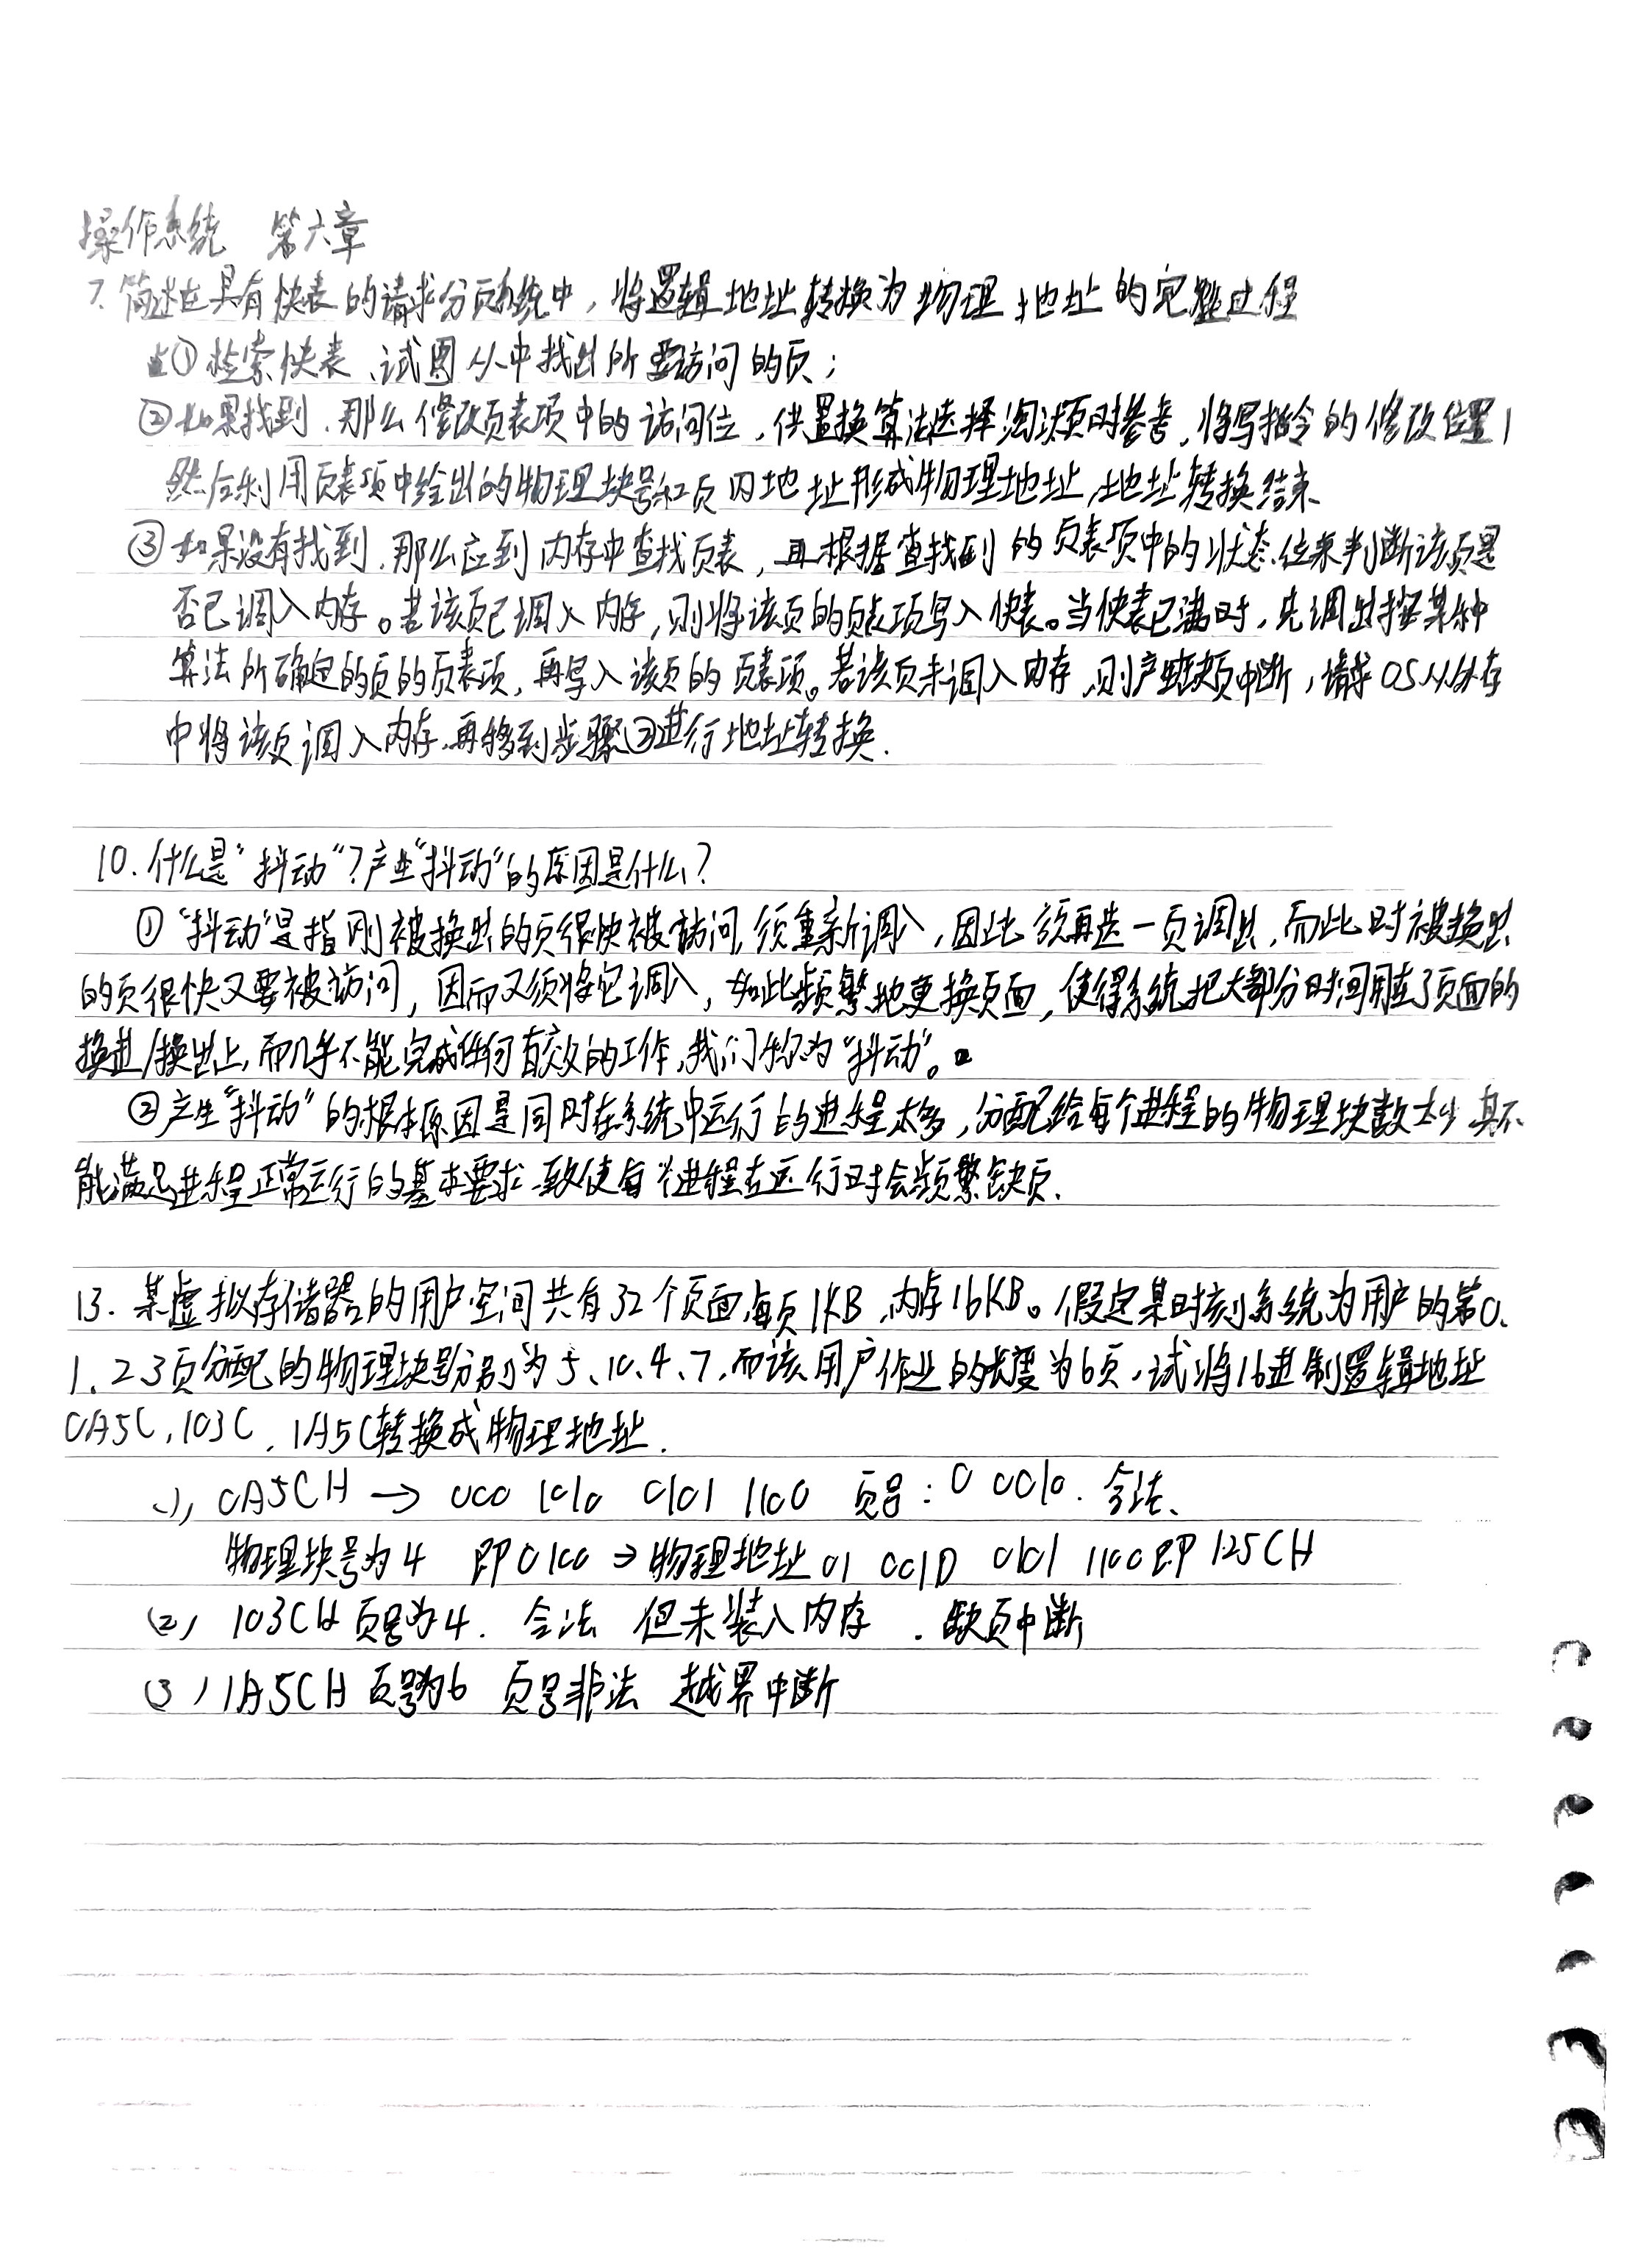 操作系统 第六章
7. 简述在具有快表的请求分页系统中，将逻辑地址转换为物理地址的完整过程
① 检索快表、试图从中找出所要访问的页；
② 如果找到、那么修改页表项中的访问位，供置换算法选择淘汰页时参考，将写指令的修改位置1
然后利用页表项中给出的物理块号和页内地址形成物理地址，地址转换结束
③ 如果没有找到、那么应到内存中查找页表，再根据查找到的页表项中的状态位来判断该页是
否已调入内存。若该页已调入内存，则将该页的页表项写入快表。当快表已满时，先调出按某种
算法所确定的页的页表项，再写入该页的页表项。若该页未调入内存，则产生缺页中断，请求OS从外存
中将该页调入内存，再移到步骤③进行地址转换.
10. 什么是“抖动”？产生“抖动”的原因是什么？
① “抖动”是指刚被换出的页很快被访问，须重新调入，因此须再选一页调出，而此时被换出
的页很快又要被访问，因而又须将它调入，如此频繁地更换页面，使得系统把大部分时间用在了页面的
换进/换出上，而几乎不能完成任何有效的工作，我们称为“抖动”。
② 产生“抖动”的根本原因是同时在系统中运行的进程太多，分配给每个进程的物理块数太少 具不
能满足进程正常运行的基本要求，致使每个进程在运行时会频繁缺页.
13. 某虚拟存储器的用户空间共有32个页面，每页1KB，内存16KB。假定某时刻系统为用户的第0、
1、2、3页分配的物理块号分别为5、10、4、7，而该用户作业的长度为6页，试将16进制逻辑地址
0A5C，103C，1A5C转换成物理地址.
(1) 0A5CH → 000 1010 0101 1100 页号：0 0010. 合法、
物理块号为4 即0100 → 物理地址 01 0010 0101 1100 即 125CH
(2) 103CH 页号为4. 合法 但未装入内存 . 缺页中断
(3) 1A5CH 页号为6 页号非法 越界中断